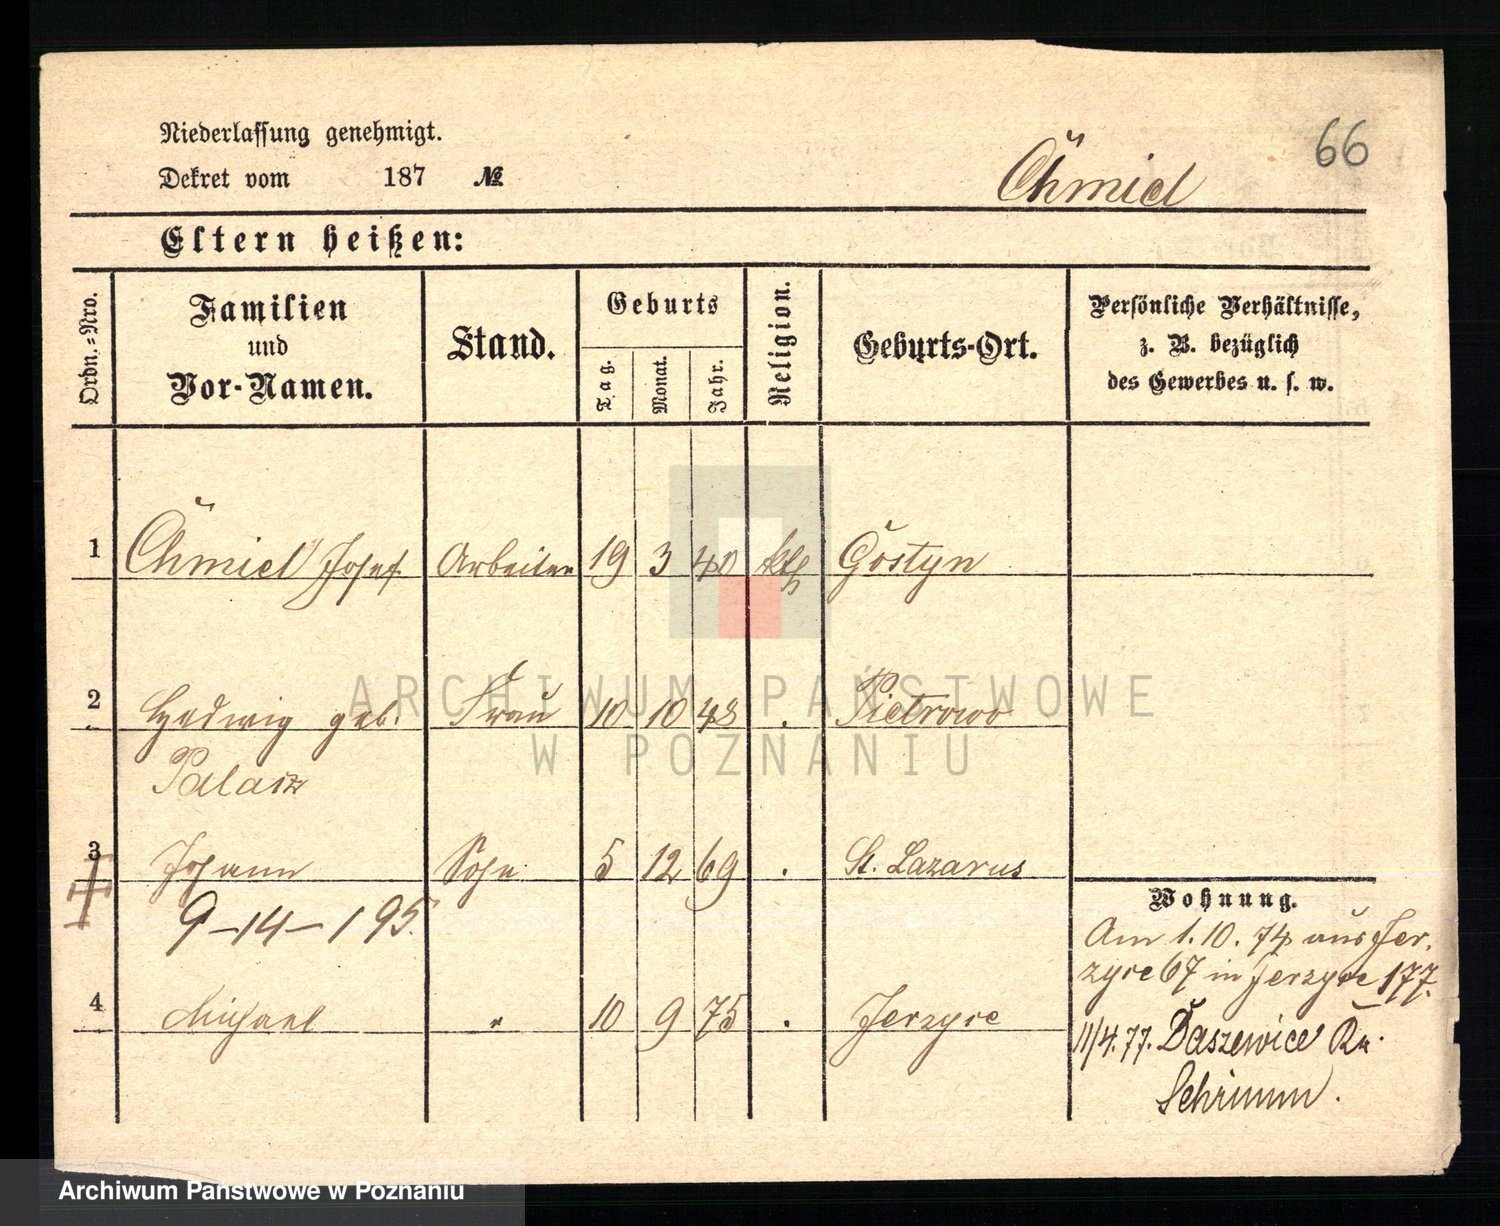 66
Niederlassung genehmigt.
Dekret vom 187 №
Chmiel
Eltern heißen:
Ordn.-Nro.
Familien
und
Vor-Namen.
Stand.
Geburts
Tag.
Monat.
Jahr.
Religion.
Geburts-Ort.
Persönliche Verhältnisse,
z. B. bezüglich
des Gewerbes u. s. w.
1 Chmiel Josef Arbeiter 19 3 40 kth Gostyn
2 Hedwig geb. Frau 10 10 48 . Pietrowo
Palacz
3 Johann Sohn 5 12 69 . St. Lazarus
9-14-195.
4 Michael " 10 9 75 . Jerzyce
Wohnung.
Am 1.10.74 aus Jer-
zyce 67 in Jerzyce 177.
11/4.77. Daszewice Kr.
Schrimm.
ARCHIWUM PAŃSTWOWE
W POZNANIU
Archiwum Państwowe w Poznaniu